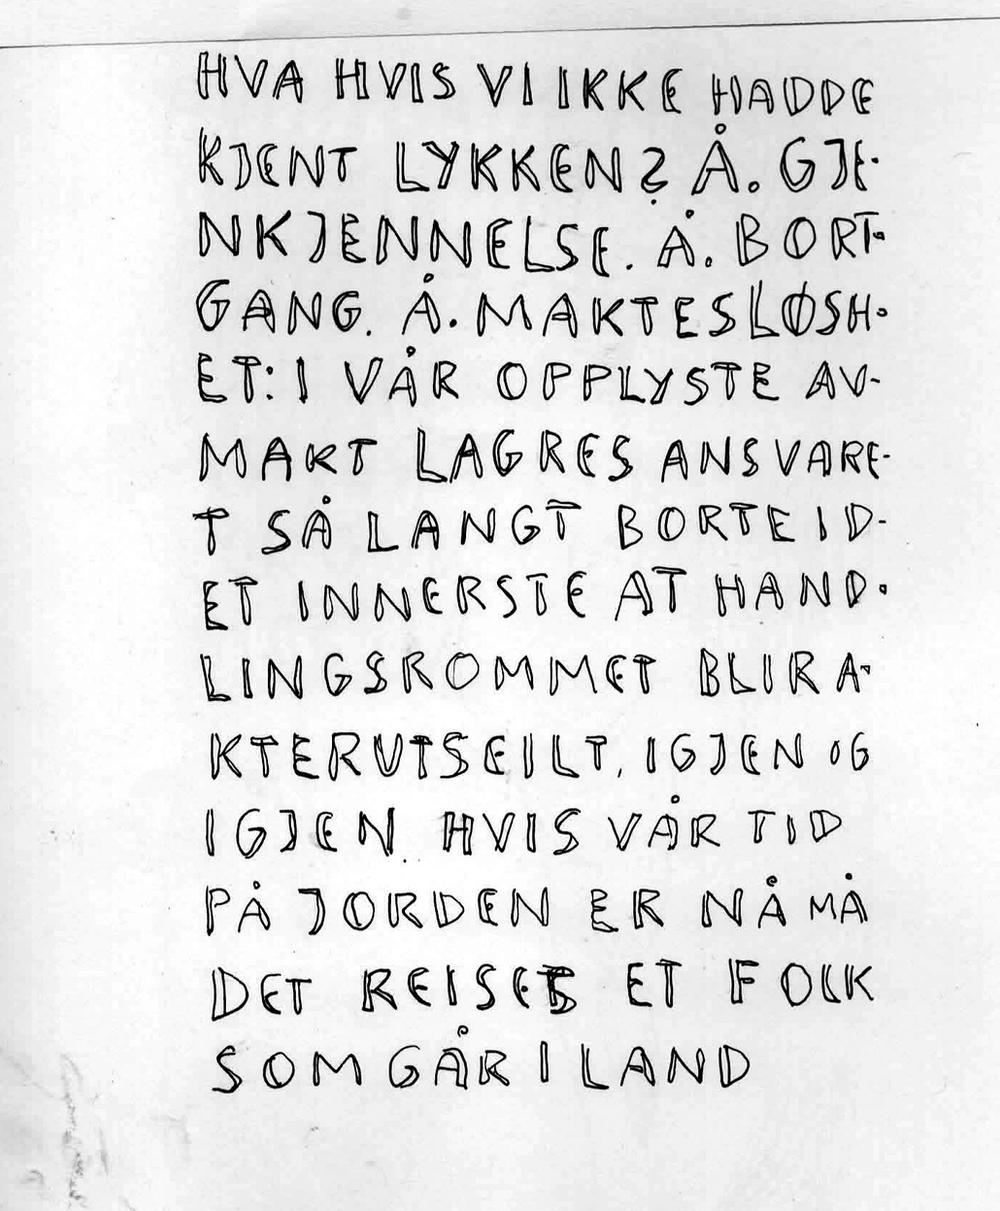 HVA HVIS VI IKKE HADDE
KJENT LYKKEN? Å. GJE-
NKJENNELSE. Å. BORT-
GANG. Å. MAKTESLØSH-
ET: I VÅR OPPLYSTE AV-
MAKT LAGRES ANSVARE-
T SÅ LANGT BORTE I D-
ET INNERSTE AT HAND-
LINGSROMMET BLIR A-
KTERUTSEILT. IGJEN OG
IGJEN. HVIS VÅR TID
PÅ JORDEN ER NÅ MÅ
DET REISES ET FOLK
SOM GÅR I LAND